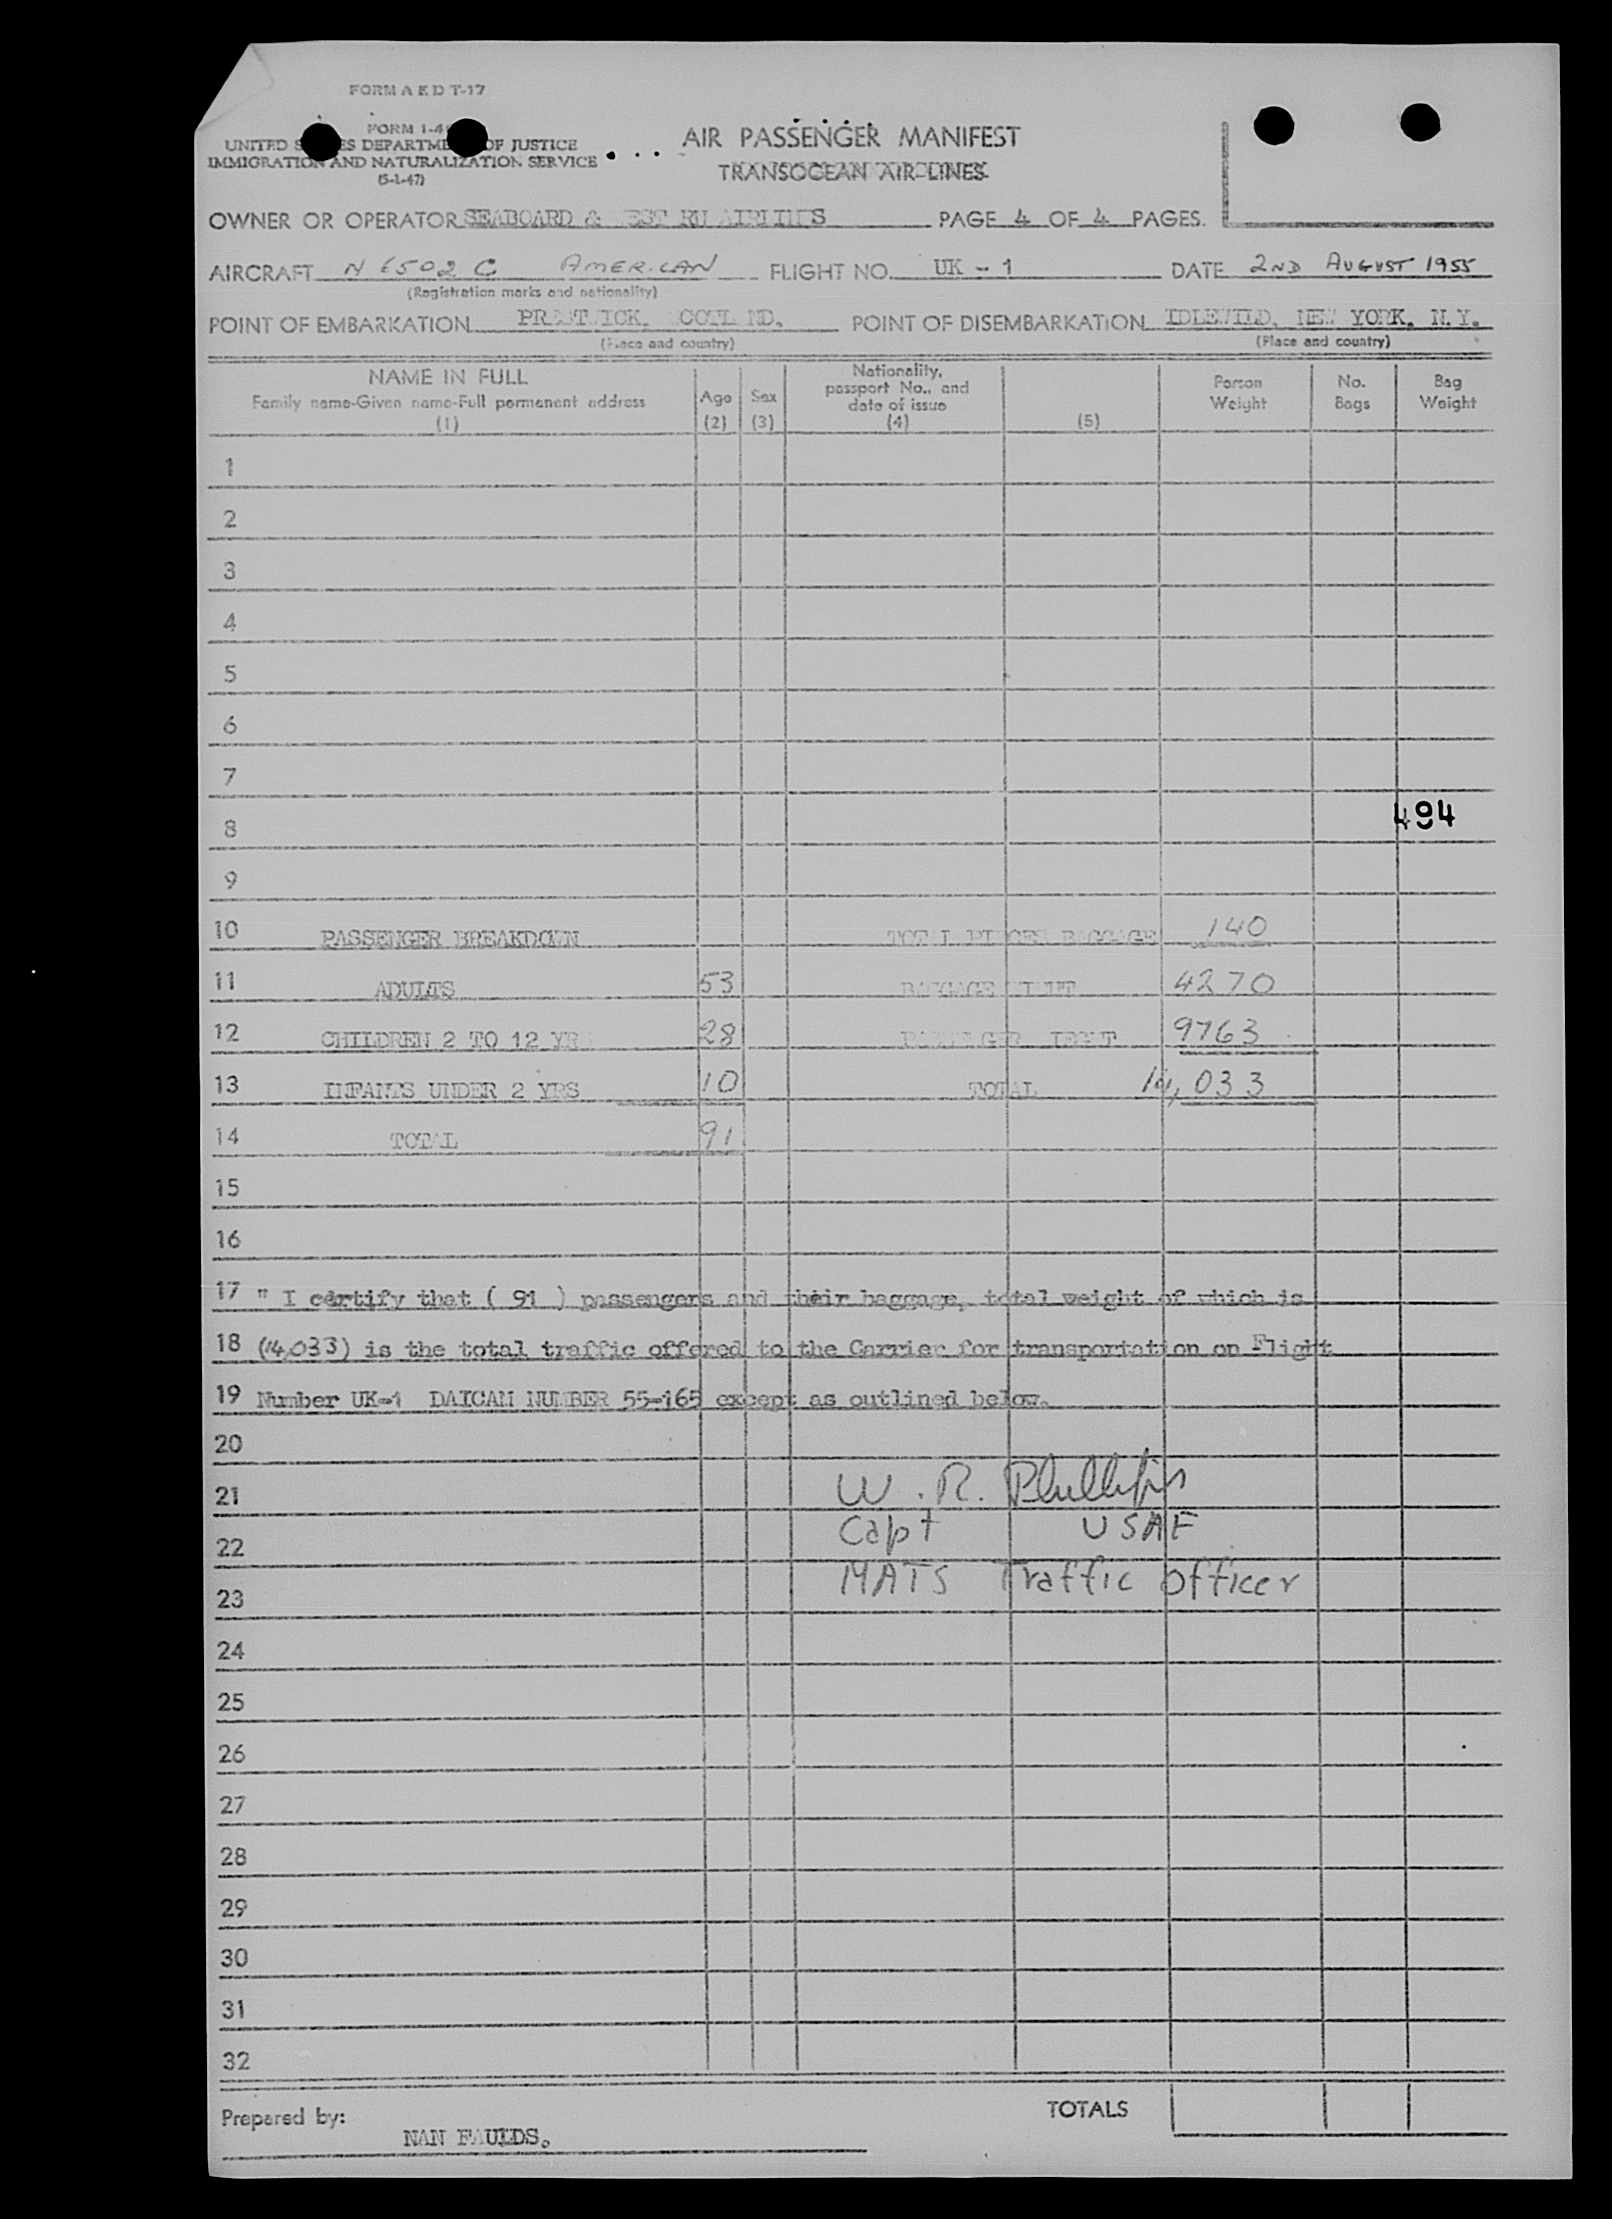 FORM A E D T-17
FORM 1-4
UNITED S ES DEPARTME OF JUSTICE
IMMIGRATION AND NATURALIZATION SERVICE
(5-1-47)
AIR PASSENGER MANIFEST
TRANSOCEAN AIR LINES
OWNER OR OPERATOR SEABOARD & EST RN AIRLINES PAGE 4 OF 4 PAGES.
AIRCRAFT N 6502 C AMERICAN FLIGHT NO. UK - 1 DATE 2ND AUGUST 1955
(Registration marks and nationality)
POINT OF EMBARKATION PRESTWICK, SCOTLAND. POINT OF DISEMBARKATION IDLEWILD, NEW YORK, N.Y.
(Place and country) (Place and country)
NAME IN FULL
Family name-Given name-Full permanent address
(1)
Age
(2)
Sex
(3)
Nationality,
passport No., and
date of issue
(4)
(5)
Person
Weight
No.
Bags
Bag
Weight
1
2
3
4
5
6
7
8 494
9
10 PASSENGER BREAKDOWN TOTAL PIECES BAGGAGE 140
11 ADULTS 53 BAGGAGE WEIGHT 4270
12 CHILDREN 2 TO 12 YRS 28 PASSENGER WEIGHT 9763
13 INFANTS UNDER 2 YRS 10 TOTAL 14,033
14 TOTAL 91
15
16
17 " I certify that ( 91 ) passengers and their baggage, total weight of which is
18 (14,033) is the total traffic offered to the Carrier for transportation on Flight
19 Number UK-1 DAICAM NUMBER 55-165 except as outlined below.
20
21 W. R. Phillips
22 Capt USAF
23 MATS Traffic Officer
24
25
26
27
28
29
30
31
32
TOTALS
Prepared by:
NAN FAULDS.